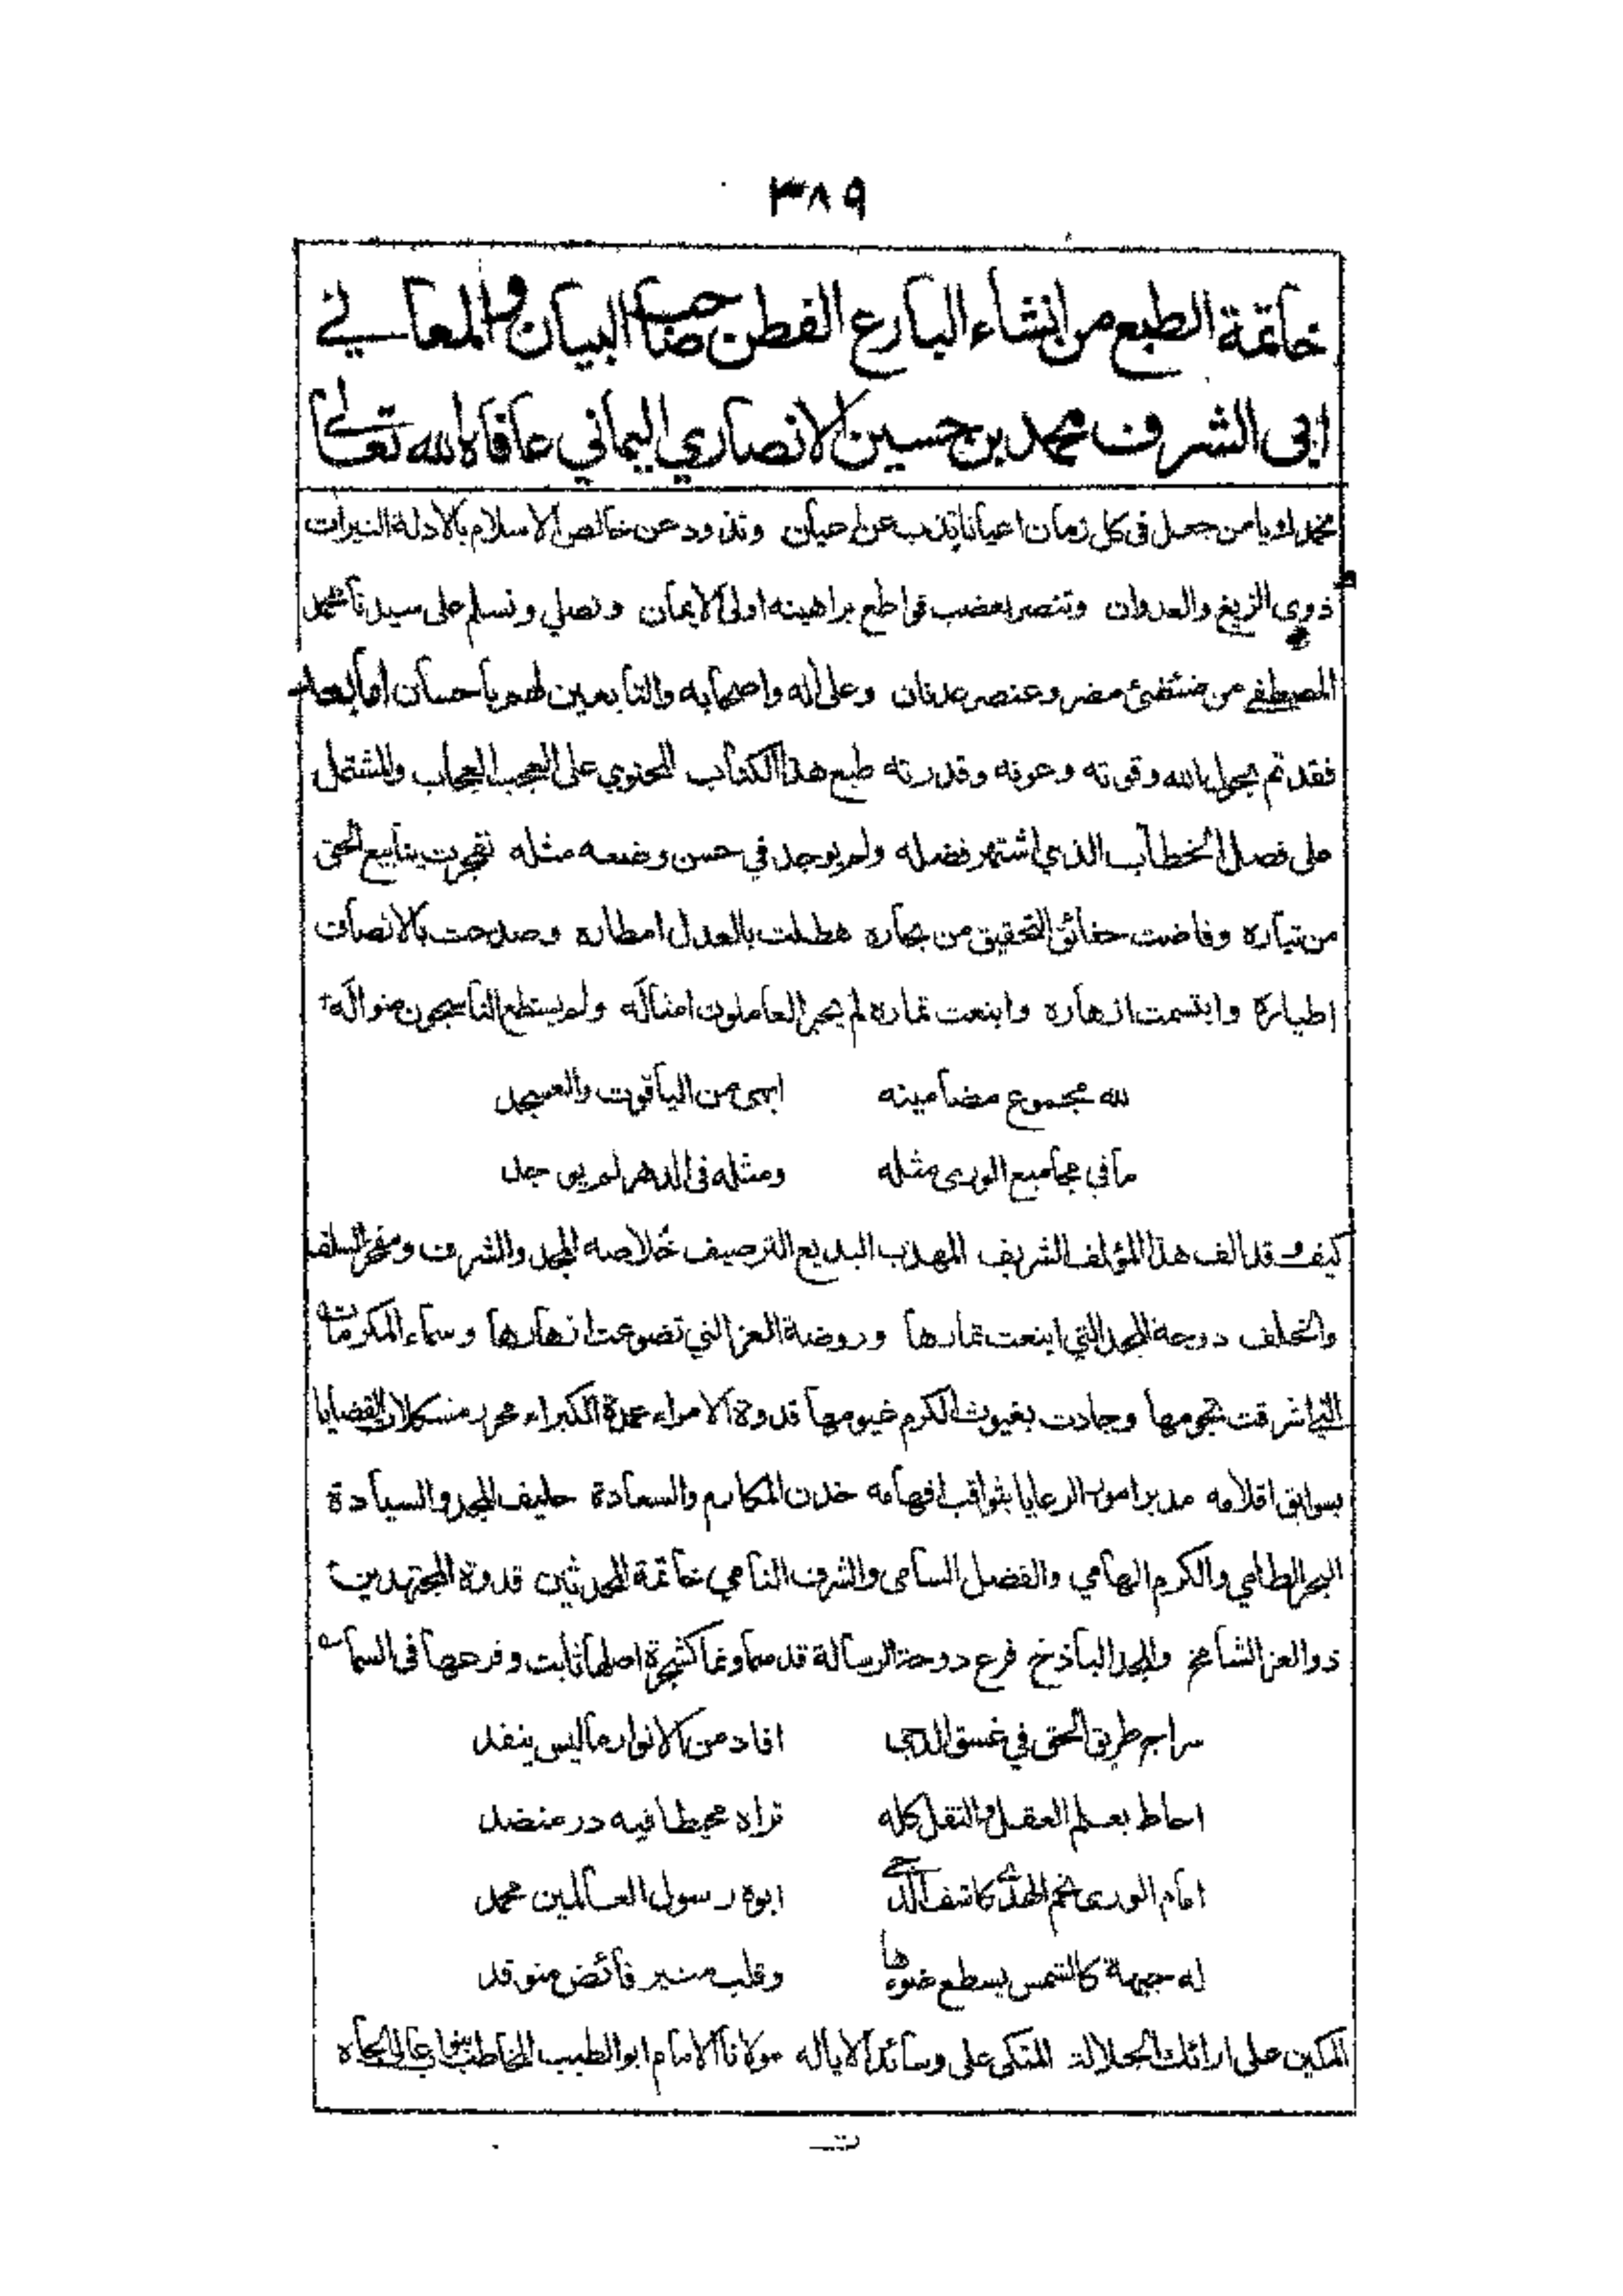 ٣٨٩
خاتمة الطبع من انشاء البارع الفطن صاحب البيان والمعاني
ابى الشرف محمد بن حسين الانصاري اليماني عافاه الله تعالى
نحمدك يا من جعل فى كل زمان اعيانا تذب عن وتذود عن خالص الاسلام بالادلة النيرات
ذوى الزيغ والعدوان وتنصر بعضب قواطع براهينه اولى الايمان ونصلي ونسلم على سيدنا محمد
المصطفى من ضئضئ مضر وعنصر عدنان وعلى اله واصحابه والتابعين لهم باحسان اما بعد
فقد تم بحول الله وقوته وعونه وقدرته طبع هذا الكتاب المحتوي على العجب العجاب والمشتمل
على فصل الخطاب الذي اشتهر فضله ولم يوجد في حسن وضعه مثله تفجرت ينابيع الحق
من تياره وفاضت حقائق التحقيق من بحاره هطلت بالعدل امطاره وصدحت بالانصاف
اطياره وابتسمت ازهاره واينعت ثماره لم يحر العاملون امثاله ولم يستطع الناسجون منواله
لله مجموع مضامينه ابهى من الياقوت والعسجد
ما في مجاميع الورى مثله ومثله فى الدهر لم يوجد
كيف وقد الف هذا المؤلف الشريف المهذب البديع الترصيف خلاصه المجد والشرف ومفخر السلف
والخلف دوحة المجد التي اينعت ثمارها وروضة العز التي تضوعت ازهارها وسماء المكرمات
التي اشرقت نجومها وجادت بغيوث الكرم غيومها قدوة الامراء عمدة الكبراء محرر مشكلات القضايا
بسوابق اقلامه مدبر امور الرعايا بثواقب افهامه خدن المكارم والسعادة حليف المجد والسيادة
البحر الطامي والكرم الهامي والفضل السامى والشرف النامي خاتمة المحدثين قدوة المجتهدين
ذو العز الشامخ والمجد الباذخ فرع دوحة الرسالة قد سما ونما كشجرة اصلها ثابت وفرعها فى السماء
سراج طريق الحق في غسق الدجى افاد من الانوار ما ليس ينفد
احاط بعلم العقل والنقل كله تراه محيطا فيه در منضد
امام الورى نجم الهدى كاشف الدجى ابوه رسول العالمين محمد
له جبهة كالشمس يسطع ضوءها وقلب منير فائض متوقد
المكين على ارائك الجلالة المتكى على وسائد الاياله مولانا الامام ابو الطيب المخاطب بنواب عالي الجاه